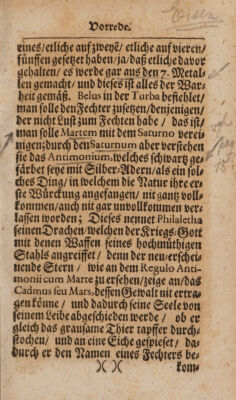 Vorrede.
eines/etliche auf zweyë/ etliche auf vieren/
fünffen gesetzet haben/ja/daß etliche davor
gehalten/ es werde gar aus den 7. Metal-
len gemacht/ und dieses ist alles der War-
heit gemäß. Belus in der Turba befiehlet/
man solle den Fechter zusetzen/denjenigen/
der nicht Lust zum Fechten habe / das ist/
man solle Martem mit dem Saturno verei-
nigen; durch den Saturnum aber verstehen
sie das Antimonium, welches schwartz ge-
färbet seye mit Silber-Adern/ als ein sol-
ches Ding/ in welchem die Natur ihre er-
ste Würckung angefangen/ nit gantz voll-
kommen/ auch nit gar unvollkommen ver-
lassen worden; Dieses nennet Philaletha
seinen Drachen/ welchen der Kriegs-Gott
mit denen Waffen seines hochmüthigen
Stahls angreiffet / denn der neu-erschei-
nende Stern / wie an dem Regulo Anti-
monii cum Marte zu ersehen/ zeige an/das
Cadmus seu Mars, dessen Gewalt nit ertra-
gen könne / und dadurch seine Seele von
seinem Leibe abgeschieden werde / ob er
gleich das grausame Thier tapffer durch-
stochen/ und an eine Eiche gespieset/ da-
durch er den Namen eines Fechters be-
)( )( kom-